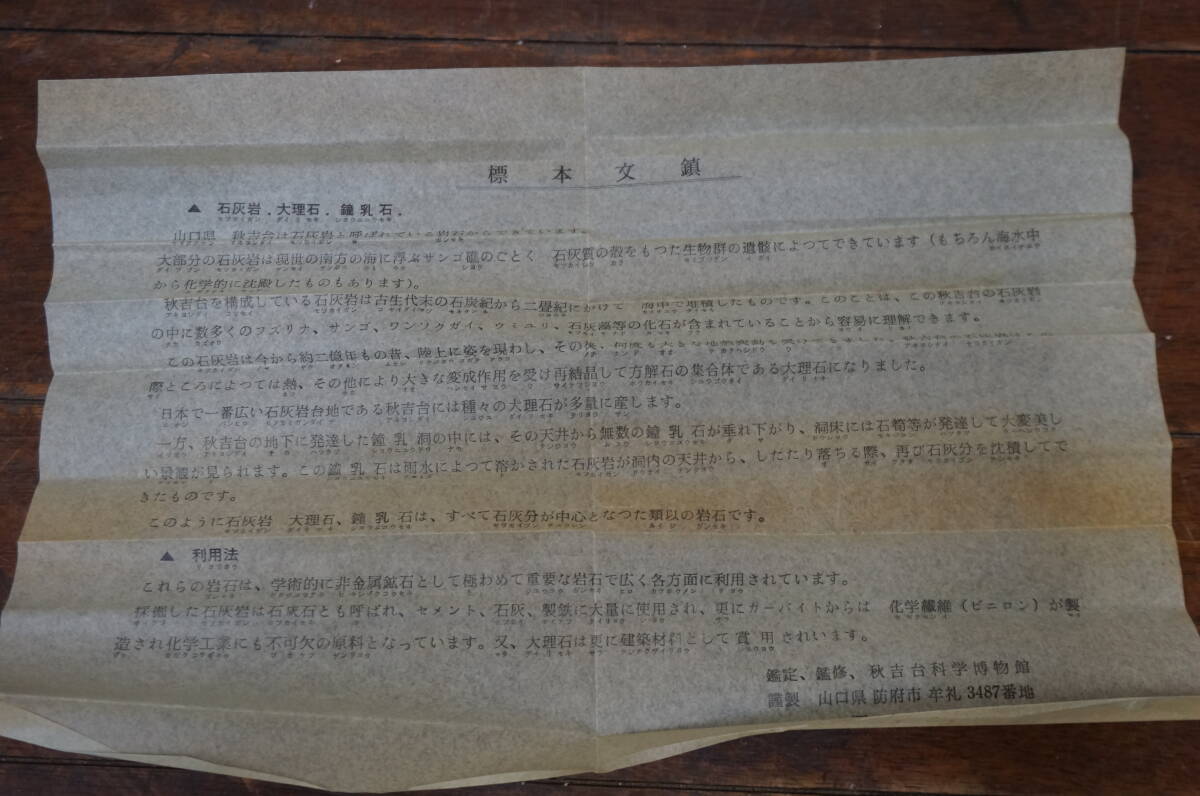 標本文鎮
▲ 石灰岩．大理石．鐘乳石．
山口県 秋吉台は石灰岩と呼ばれている岩石からできています。
大部分の石灰岩は現世の南方の海に浮ぶサンゴ礁のごとく 石灰質の殻をもつた生物群の遺骸によつてできています（もちろん海水中
から化学的に沈殿したものもあります）。
秋吉台を構成している石灰岩は古生代末の石炭紀から二畳紀にかけて 海中で堆積したものです。このことは、この秋吉台の石灰岩
の中に数多くのフズリナ、サンゴ、ワンソクガイ、ウミユリ、石灰藻等の化石が含まれていることから容易に理解できます。
この石灰岩は今から約二億年もの昔、陸上に姿を現わし、その後、何度も大きな地殻変動を受けて
際ところによつては熱、その他により大きな変成作用を受け再結晶して方解石の集合体である大理石になりました。
日本で一番広い石灰岩台地である秋吉台には種々の大理石が多量に産します。
一方、秋吉台の地下に発達した鐘乳洞の中には、その天井から無数の鐘乳石が垂れ下がり、洞床には石筍等が発達して大変美し
い景観が見られます。この鐘乳石は雨水によつて溶かされた石灰岩が洞内の天井から、したたり落ちる際、再び石灰分を沈積してで
きたものです。
このように石灰岩 大理石、鐘乳石は、すべて石灰分が中心となつた類以の岩石です。
▲ 利用法
これらの岩石は、学術的に非金属鉱石として極わめて重要な岩石で広く各方面に利用されています。
採掘した石灰岩は石灰石とも呼ばれ、セメント、石灰、製鉄に大量に使用され、更にカーバイトからは 化学繊維（ビニロン）が製
造され化学工業にも不可欠の原料となっています。又、大理石は更に建築材料として賞用されいます。
鑑定、鑑修、秋吉台科学博物館
謹製 山口県防府市牟礼3487番地